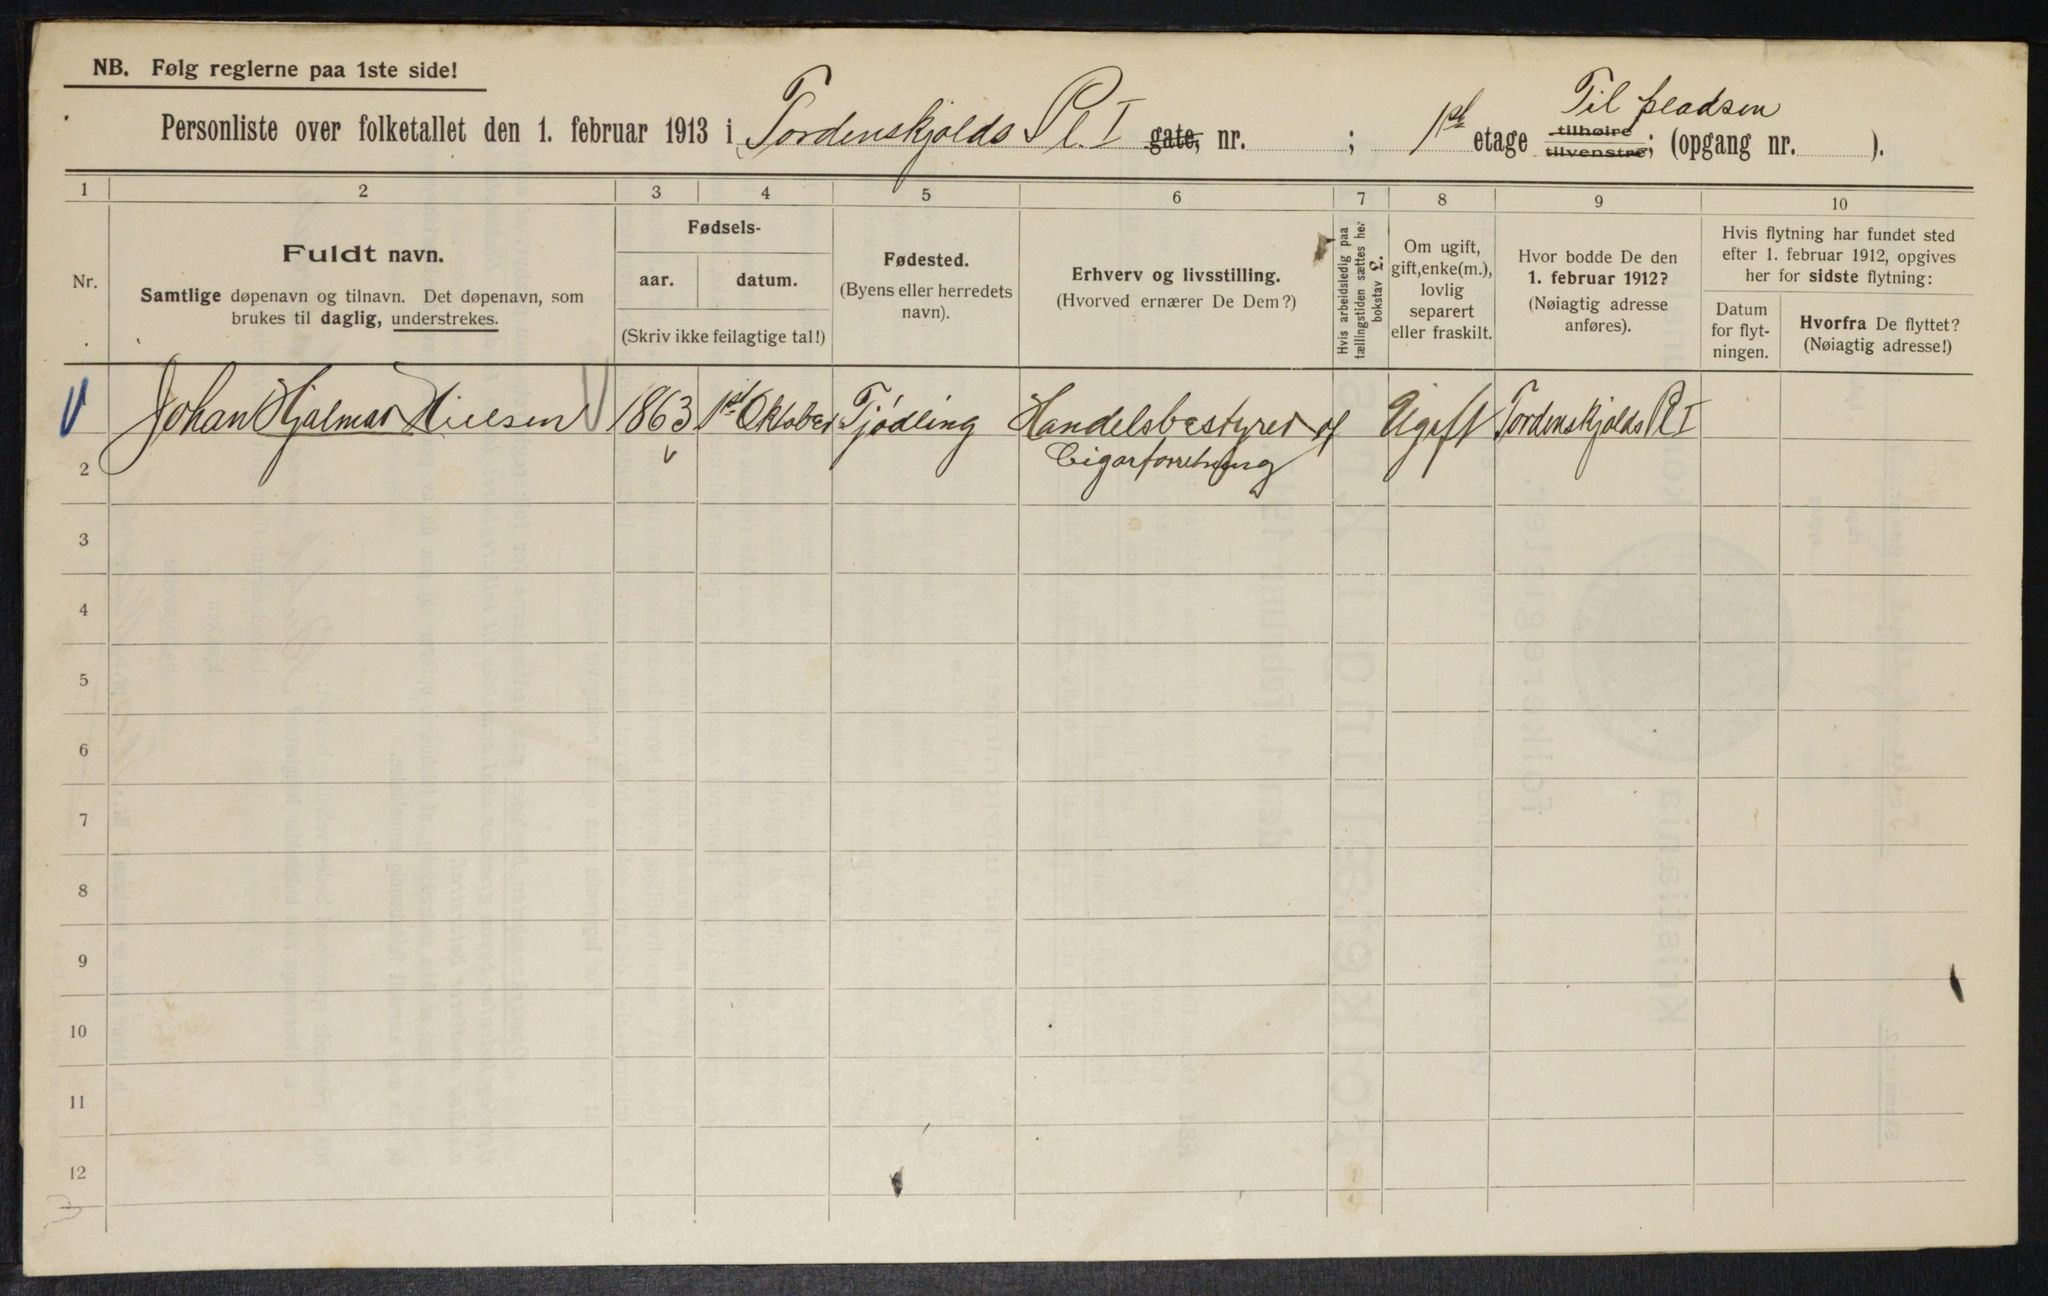 NB. Følg reglerne paa 1ste side!
Til pladsen
Personliste over folketallet den 1. februar 1913 i Tordenskjolds Pl. I gate, nr. ; 1ste etage tilhøire tilvenstre; (opgang nr. ).
1 2 3 4 5 6 7 8 9 10
Nr.
Fuldt navn.
Samtlige døpenavn og tilnavn. Det døpenavn, som
brukes til daglig, understrekes.
Fødsels-
aar. datum.
(Skriv ikke feilagtige tal!)
Fødested.
(Byens eller herredets
navn).
Erhverv og livsstilling.
(Hvorved ernærer De Dem?)
Hvis arbeidsledig paa
tællingstiden sættes her
bokstav L.
Om ugift,
gift, enke(m.),
lovlig
separert
eller fraskilt.
Hvor bodde De den
1. februar 1912?
(Nøiagtig adresse
anføres).
Hvis flytning har fundet sted
efter 1. februar 1912, opgives
her for sidste flytning:
Datum
for flyt-
ningen.
Hvorfra De flyttet?
(Nøiagtig adresse!)
Johan Hjalmar Nielsen 1863 1st Oktober Tjödling Handelsbestyrer af Ugift Tordenskjolds Pl I
Cigarforretning
2
3
4
5
6
7
8
9
10
11
12